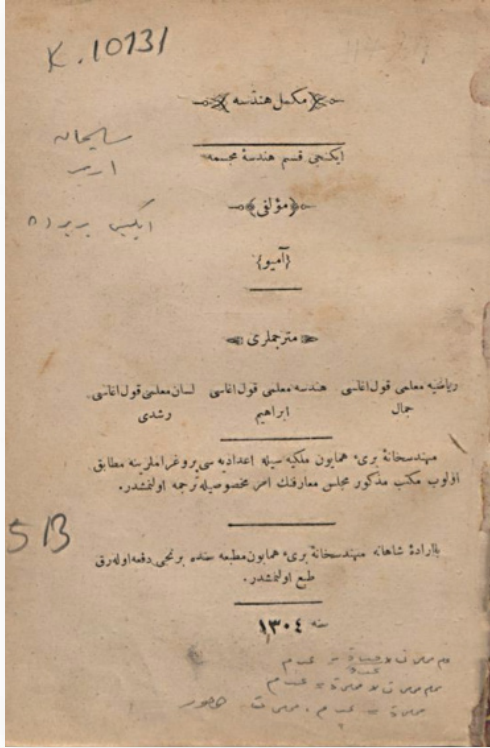 K. 10131
مكمل هندسه
ایكنجی قسم هندسهٔ مجسمه
﴿مؤلفی﴾
{آمیو}
مترجملری
ریاضیه معلمی قول اغاسی هندسه معلمی قول اغاسی لسان معلمی قول اغاسی
جمال ابراهیم رشدی
مهندسخانهٔ بریء همایون ملكیه سیله اعدادیه سی پروغراملرینه مطابق
اولوب مكتب مذكور مجلس معارفنك امر مخصوصیله ترجمه اولنمشدر.
513
باارادهٔ شاهانه مهندسخانهٔ بریء همایون مطبعه سنده برنجی دفعه اوله رق
طبع اولنمشدر.
سنه ١٣٠٤